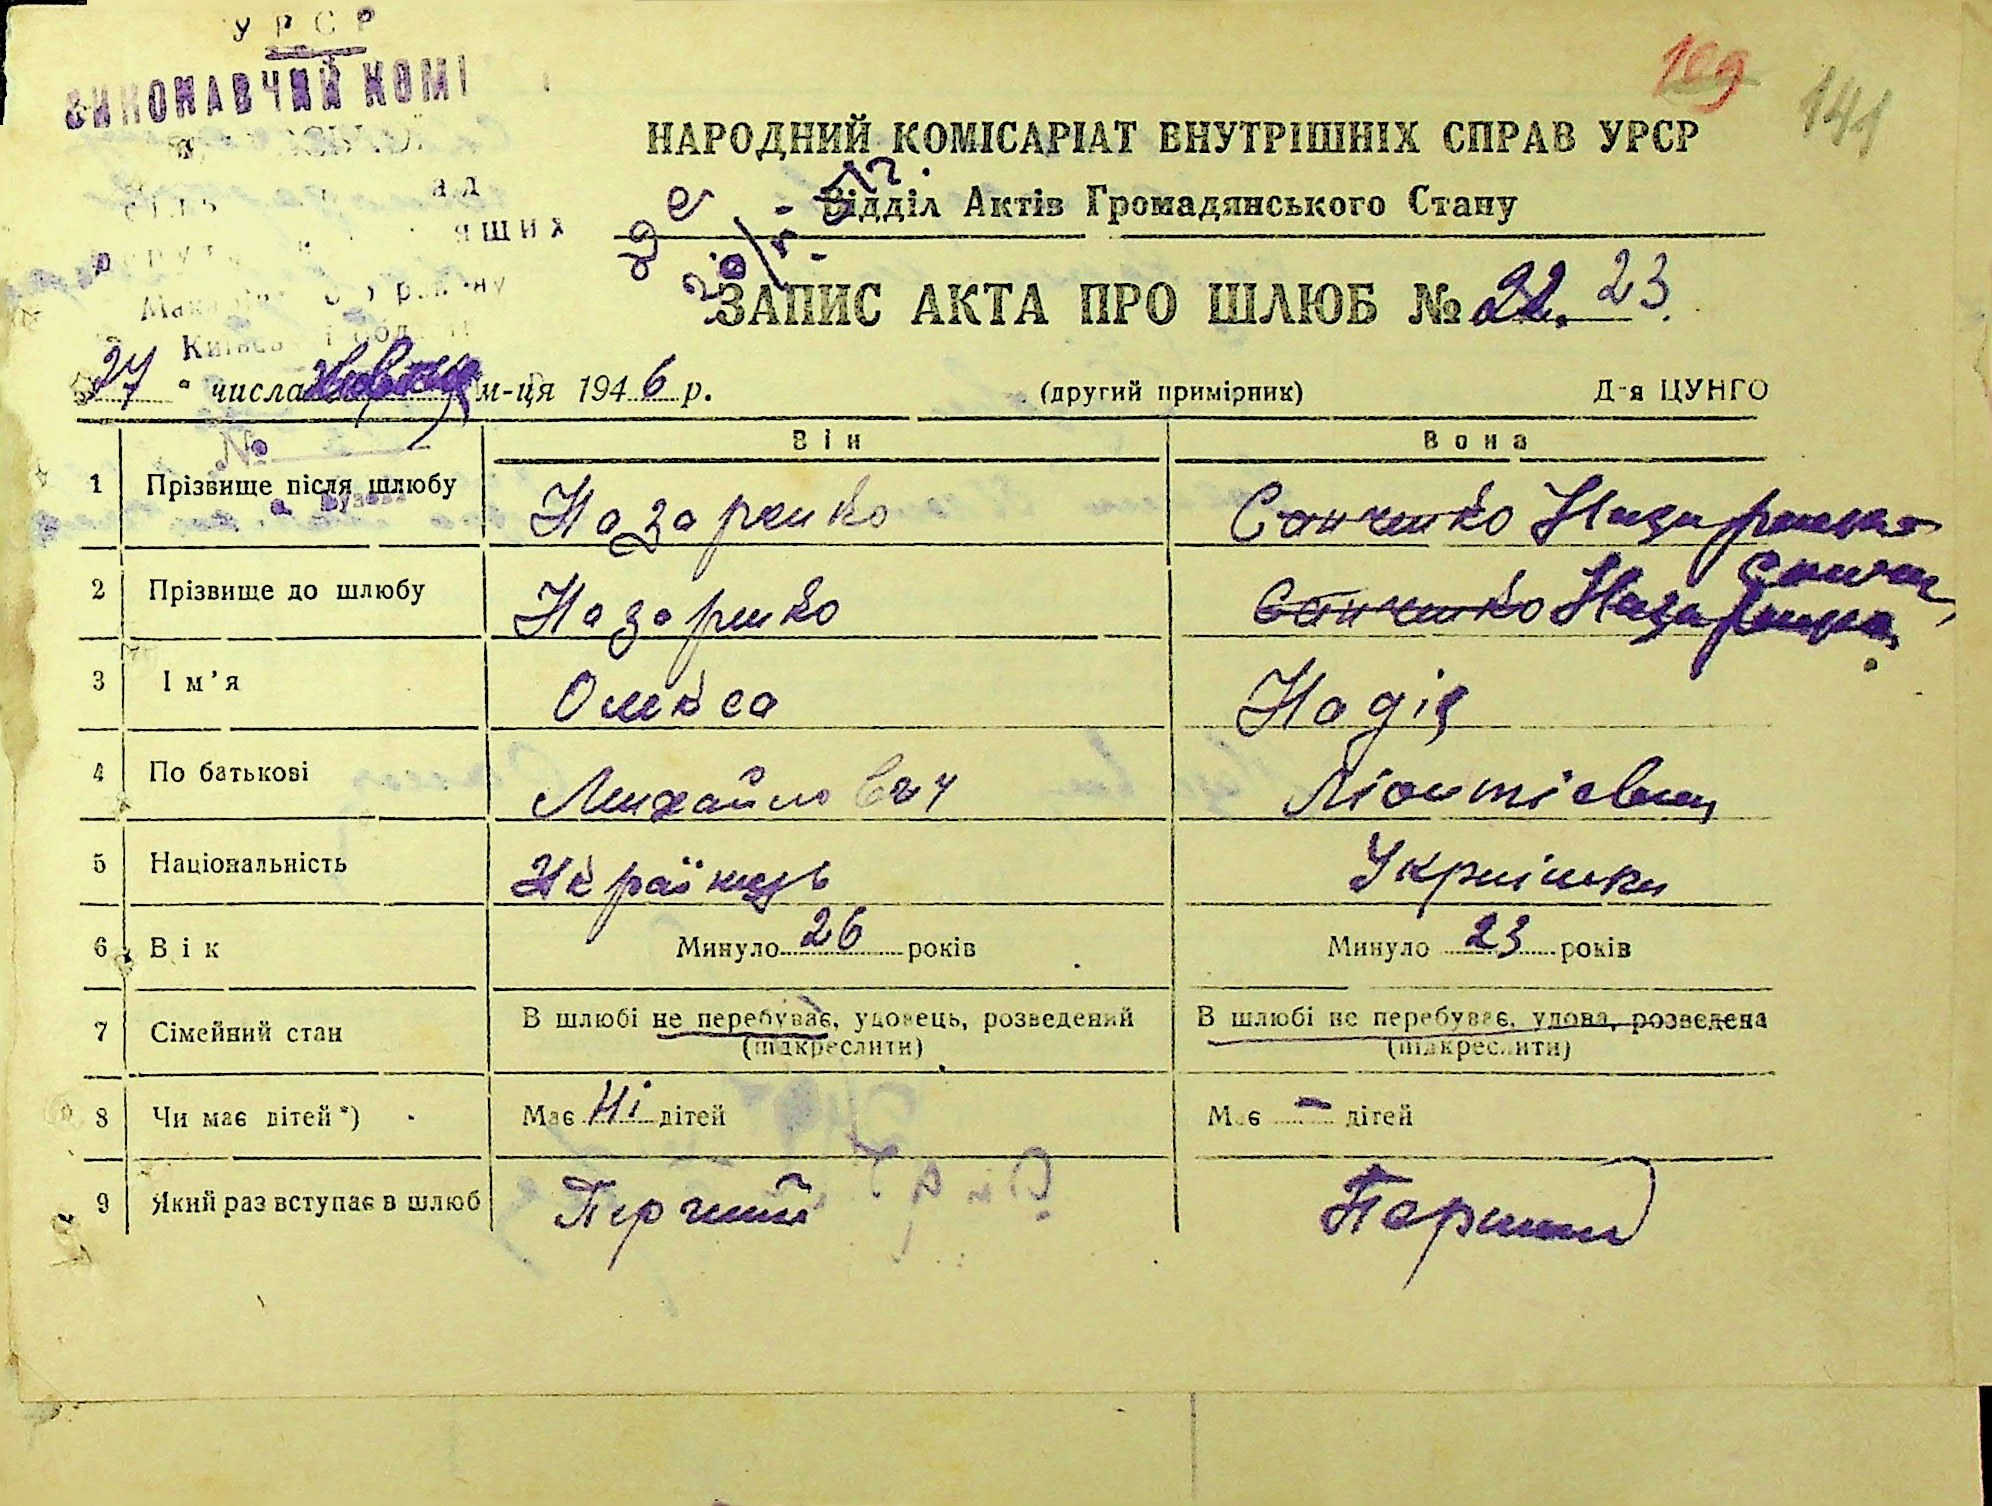 УРСР
ВИКОНАВЧИЙ КОМІ
109
141
НАРОДНИЙ КОМІСАРІАТ ВНУТРІШНІХ СПРАВ УРСР
Відділ Актів Громадянського Стану
ящих
ЗАПИС АКТА ПРО ШЛЮБ № 22. 23.
27 " числа жовтня м-ця 1946 р.
(другий примірник)
Д-я ЦУНГО
№
Він
Вона
1 Прізвище після шлюбу Назаренко Санченко Назаренко
2 Прізвище до шлюбу Назаренко Санченко Назаренко
3 Ім'я Олекса Надія
4 По батькові Михайлович Ліонтіевна
5 Національність Українець Українка
6 Вік Минуло 26 років Минуло 23 років
7 Сімейний стан В шлюбі не перебуває, удовець, розведений В шлюбі не перебуває, удова, розведена
(підкреслити) (підкреслити)
8 Чи має дітей *) Має Ні дітей Має – дітей
9 Який раз вступає в шлюб Перчий Перший